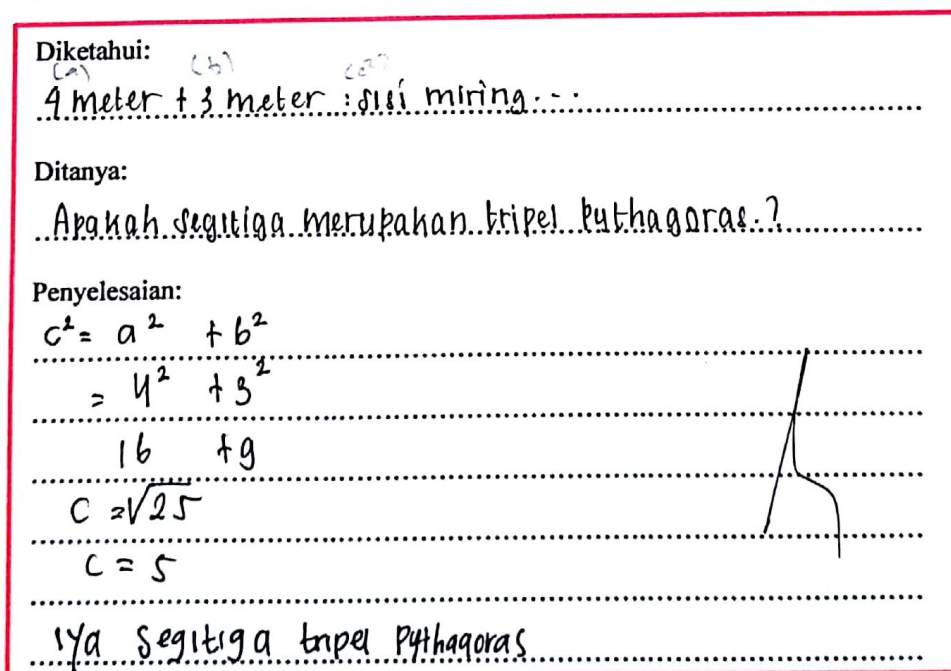 Diketahui:
(a) (b) (c²)
4 meter + 3 meter : sisi miring...
Ditanya:
Apakah segitiga merupakan tripel Pythagoras.?
Penyelesaian:
c² = a² + b²
= 4² + 3²
16 + 9
C = √25
C = 5
iya segitiga tripel Pythagoras